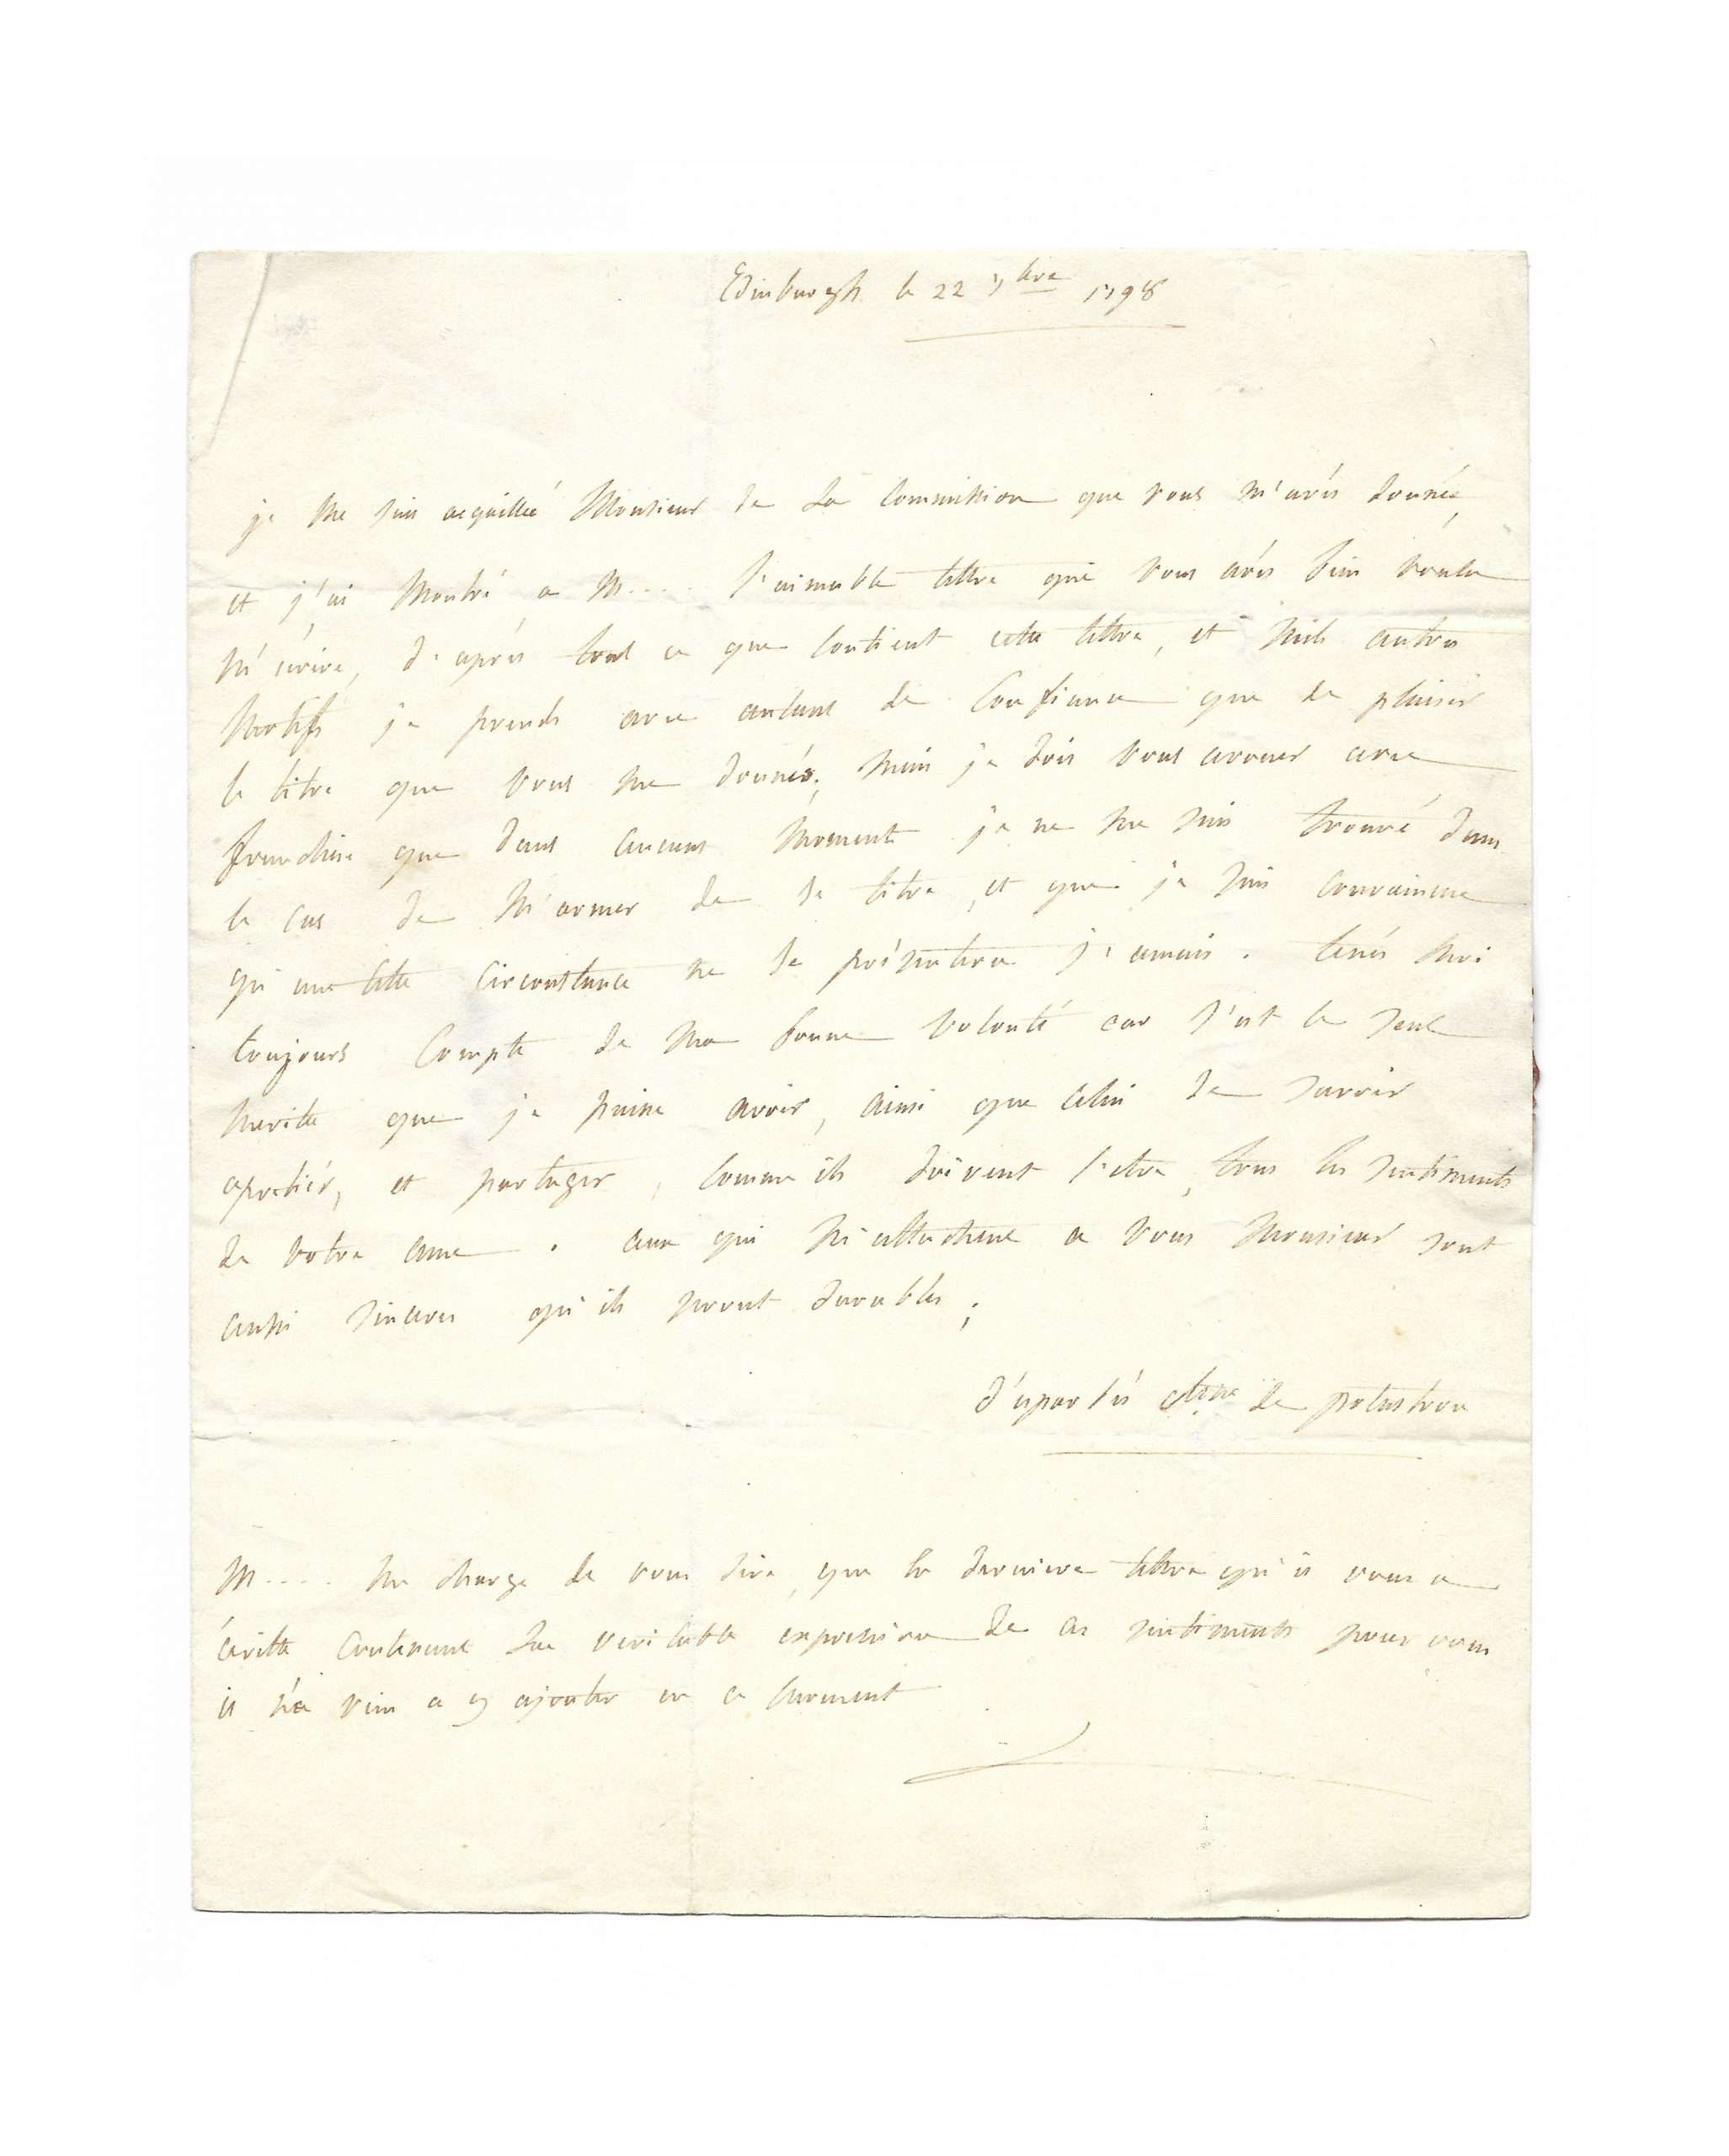 Edinburgh le 22 7bre 1798
je me suis acquittée Monsieur de la Commission que vous m'avés donnée,
et j'ai Montré a M.... l'aimable lettre que vous avés bien voulu
m'écrire, d'après tout ce que Contient cette lettre, et mile autres
Motifs je prends avec autant de Confiance que de plaisir
le titre que vous me donnés, mais je dois vous avouer avec
franchise que dans aucuns Moments je ne me suis trouvé dans
le cas de M'armer de se titre, et que je suis convaincue
qu'une telle circonstance ne se présentera j'amais. tenés Moi
toujours Compte de Ma bonne volonté car s'est le seul
Merite que je puisse avoir, ainsi que celui de savoir
aprétier, et partager, comme ils doivent l'etre, tous les sentiments
de votre ame. ceux qui M'attachent a vous Monsieur sont
aussi sinceres qu'ils seront durables,
d'esparbés ctesse de polastron
M.... Me charge de vous dire, que la derniere lettre qu'il vous a
écritte contenant la veritable expression de ces sentiments pour vous
il n'a rien a y ajouter en ce moment